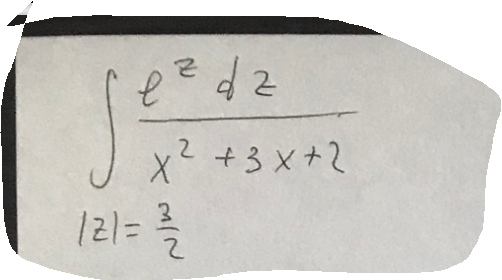 ∫ e^z dz / (x^2 + 3x + 2)
|z| = 3/2